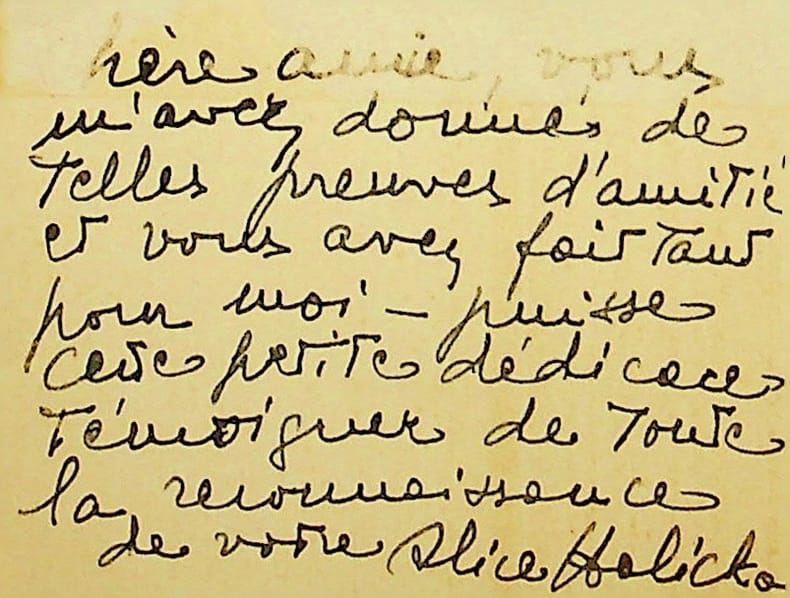 hère amie, vous
m'avez donné de
telles preuves d'amitié
et vous avez fait tant
pour moi – puisse
cette petite dédicace
témoigner de toute
la reconnaissance
de votre Alice Halicka